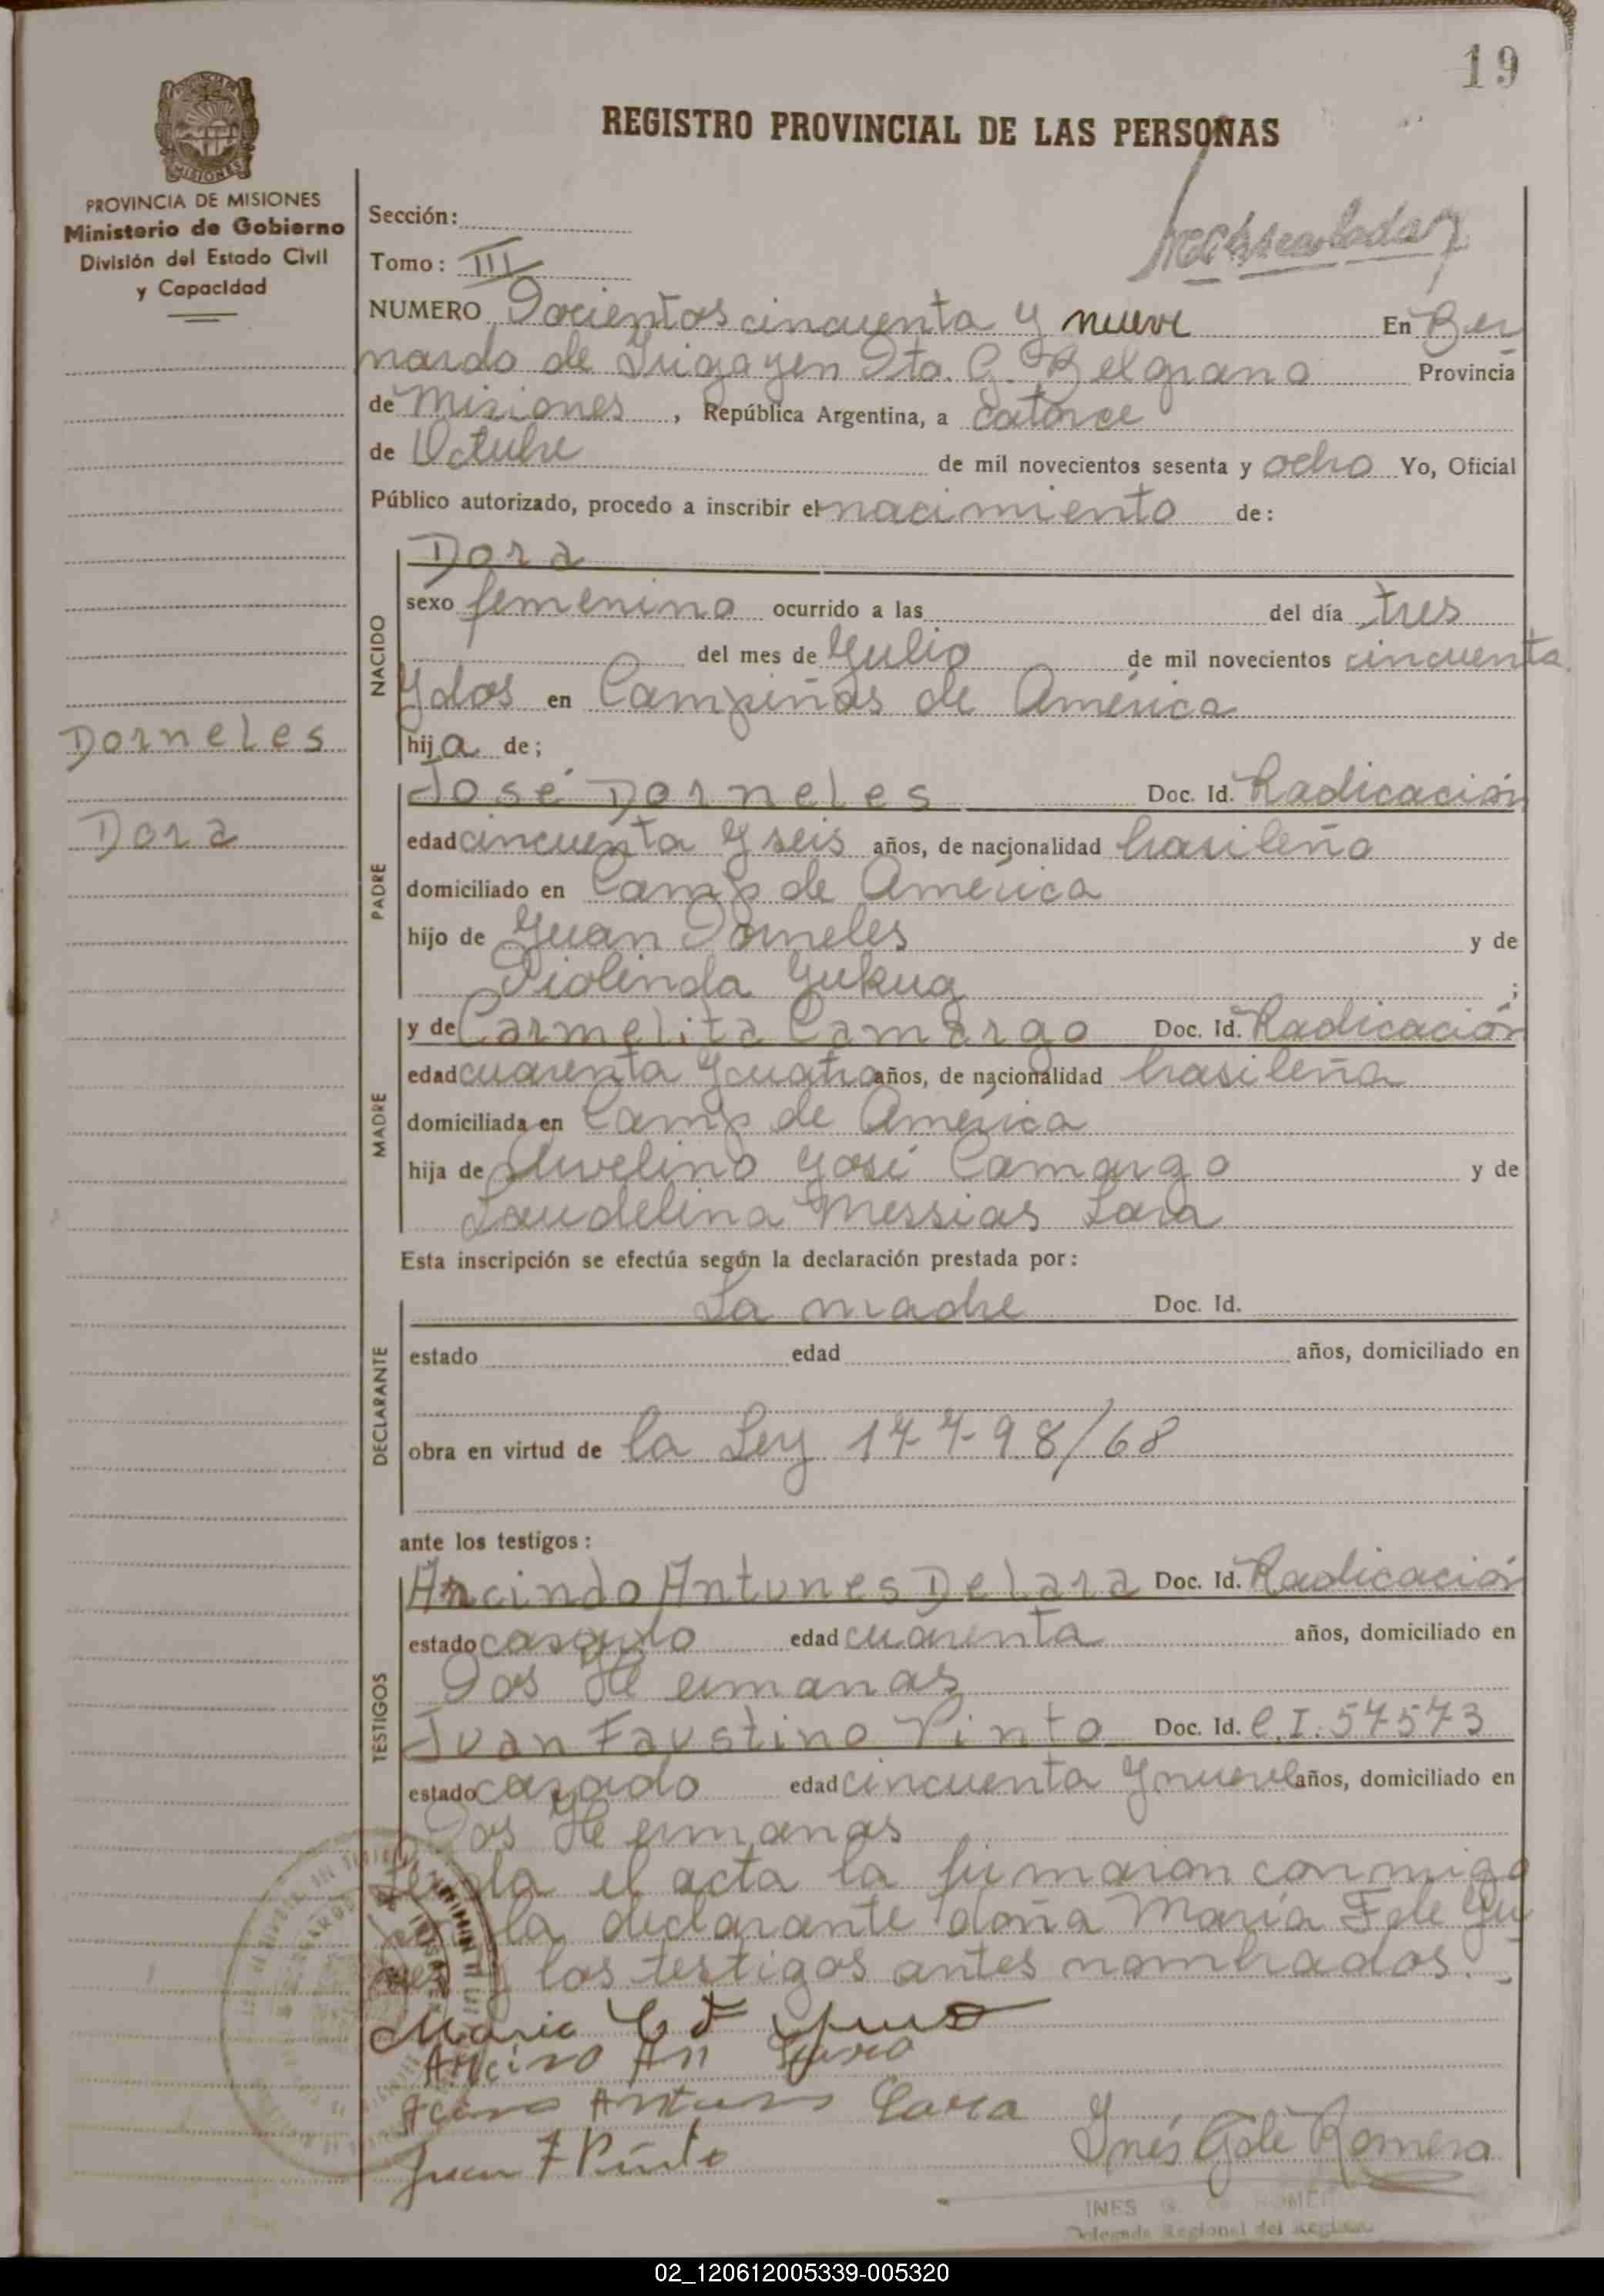 19
REGISTRO PROVINCIAL DE LAS PERSONAS
PROVINCIA DE MISIONES
Ministerio de Gobierno
División del Estado Civil
y Capacidad
Sección:
Tomo: III
NUMERO Docientos cincuenta y nueve En Ber
nardo de Irigoyen Dto. G. Belgrano Provincia
de Misiones, República Argentina, a catorce
de Octubre de mil novecientos sesenta y ocho Yo, Oficial
Público autorizado, procedo a inscribir el nacimiento de:
NACIDO
Dora
sexo femenino ocurrido a las del día tres
del mes de Julio de mil novecientos cincuenta
y dos en Campiñas de América
hija de;
Dorneles
Dora
PADRE
José Dorneles Doc. Id. Radicación
edad cincuenta y seis años, de nacionalidad brasileño
domiciliado en Camp de América
hijo de Juan Dorneles y de
;
MADRE
y de Carmelita Camargo Doc. Id. Radicación
edad cuarenta y cuatro años, de nacionalidad brasileña
domiciliada en Camp de América
hija de Avelino José Camargo y de
Laudelina Messias Lara
Esta inscripción se efectúa según la declaración prestada por:
DECLARANTE
La madre Doc. Id.
estado edad años, domiciliado en
obra en virtud de la Ley 17798/68
ante los testigos:
TESTIGOS
Antunes De Lara Doc. Id. Radicación
estado casado edad cuarenta años, domiciliado en
Dos Hermanas
Juan Faustino Pinto Doc. Id. C.I. 57573
estado casado edad cincuenta y nueve años, domiciliado en
Dos Hermanas
Leída el acta la firmaron conmigo
la declarante doña María F de
y los testigos antes nombrados.
Maria
Antunes Lara
Juan F Pinto
Inés G de Romero
INES G. DE ROMERO
Delegada Regional del Registro
02_120612005339-005320